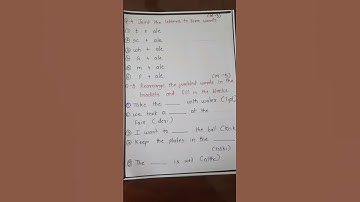 (M-3)
Q.4. Join the letters to form words
① t + ale
② sc + ale
③ wh + ale
④ b + ale
⑤ m + ale
⑥ + ale
(M-5)
Q.5 Rearrange the jumbled words in the
brackets and fill in the blanks
① Take the ____ with water.
② We took a ____ at the
Fair.
③ I want to ____ the ball
④ Keep the plates in the ____
⑤ The ____ is